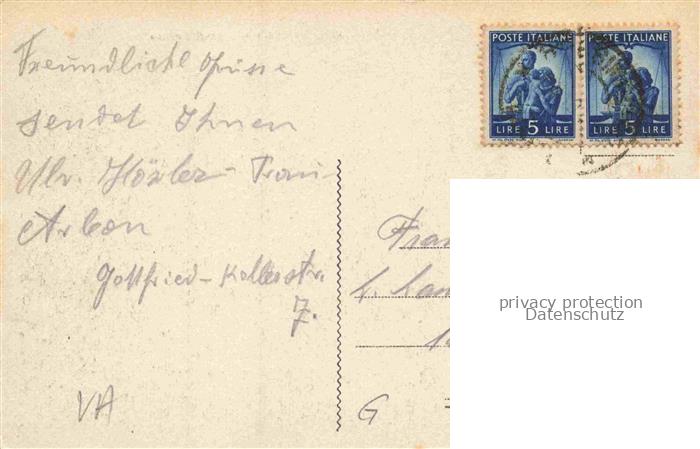 POSTE ITALIANE POSTE ITALIANE
LIRE 5 LIRE LIRE 5 LIRE
Freundliche Grüsse
sendet Ihnen
Ulr.
Arbon
Gottfried-Kellerstr.
7.
VA
G
privacy protection
Datenschutz